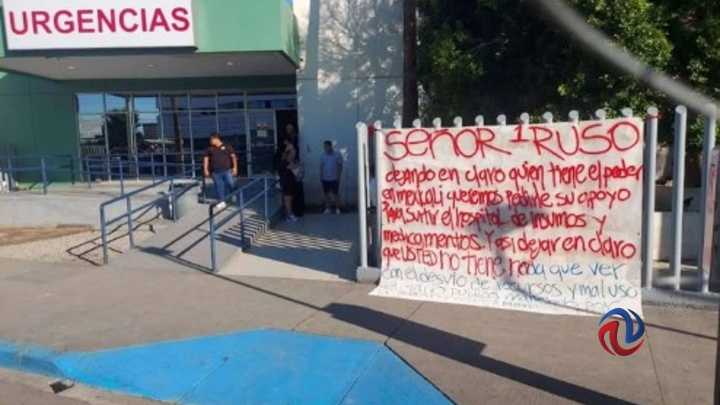 URGENCIAS
SEÑOR 1 RUSO
dejando en claro quien tiene el poder
en mexicali queremos pedirle su apoyo
Para Surtir el hospital de insumos y
medicamentos. Y asi dejar en claro
que USTED no tiene nada que ver
con el desvio de recursos y mal uso